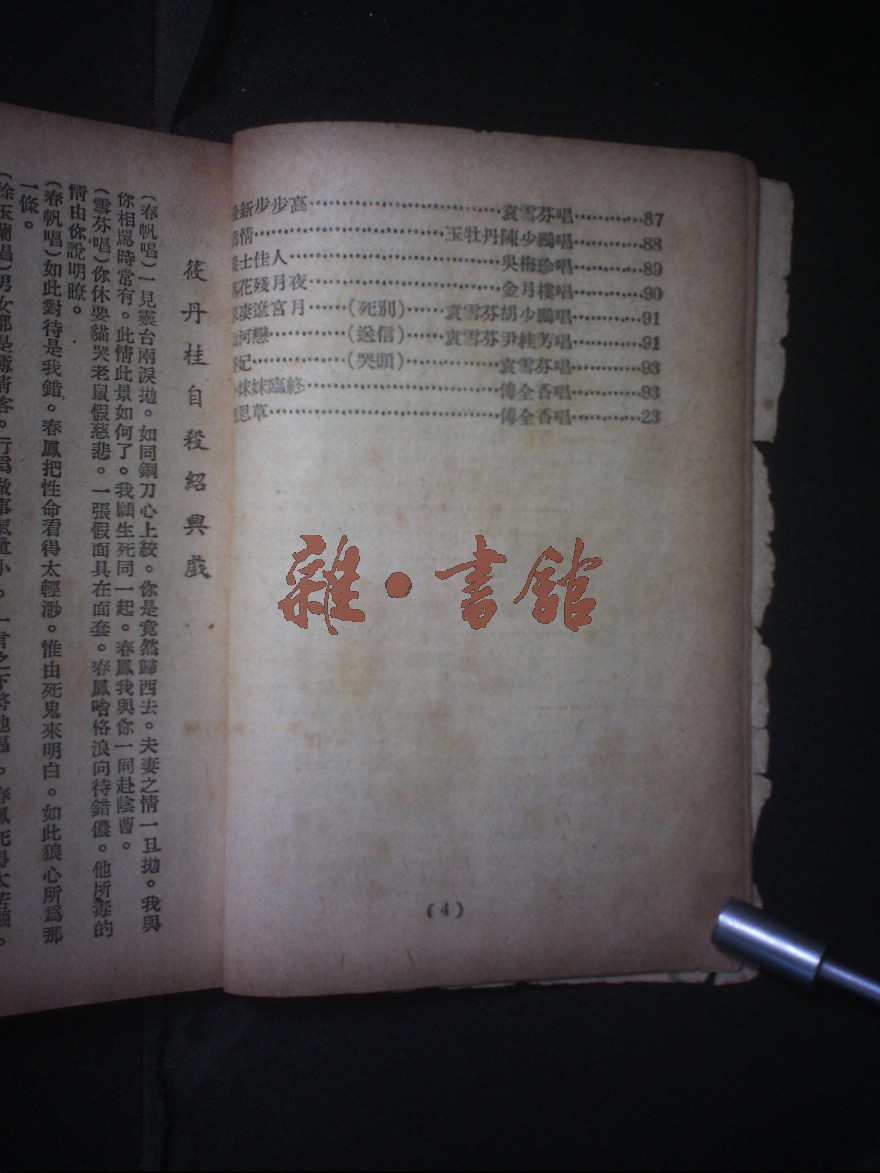 新步步高……袁雪芬唱……87
情……玉牡丹陳少鵬唱……88
士佳人……吳梅珍唱……89
花殘月夜……金月樓唱……90
凄遼宮月……(死別)……袁雪芬胡少鵬唱……91
河戀……(送信)……袁雪芬尹桂芳唱……91
妃……(哭頭)……袁雪芬唱……93
妹妹臨終……傅全香唱……93
思草……傅全香唱……23
(4)
雜·書館
筱丹桂自殺紹興戲
(春帆唱)一見靈台兩淚拋。如同鋼刀心上絞。你是竟然歸西去。夫妻之情一旦拋。我與
你相駡時常有。此情此景如何了。我願生死同一起。春鳳我與你一同赴陰曹。
(雪芬唱)你休要貓哭老鼠假慈悲。一張假面具在面套。春鳳啥格浪向待錯儂。他所毒的
情由你說明瞭。
(春帆唱)如此對待是我錯。春鳳把性命看得太輕渺。惟由死鬼來明白。如此狼心所爲那
一條。
(徐玉蘭唱)男女都是痴情客。行爲做事氣量小。一言之下將他逼。春鳳死得太苦惱。